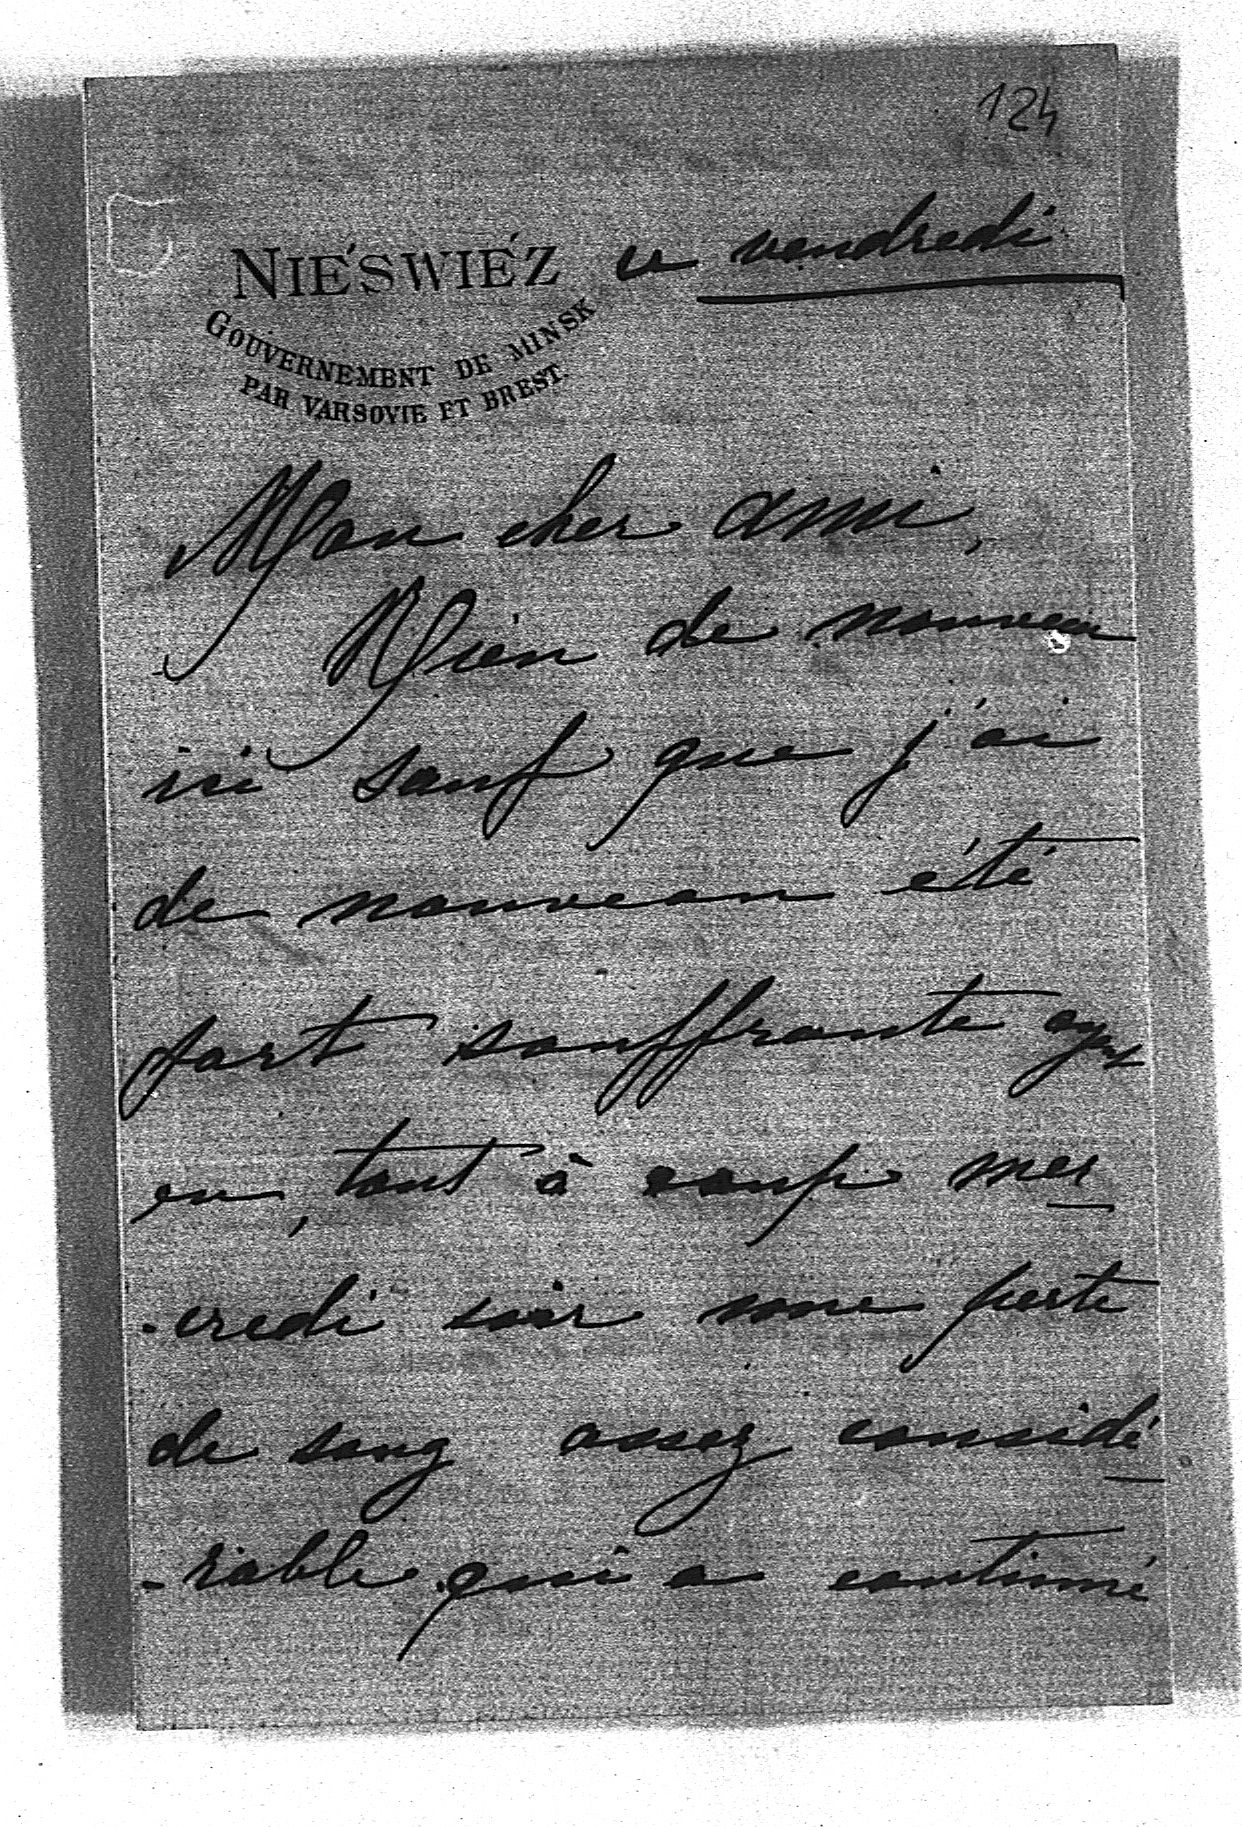 124
NIEŚWIEŻ ce vendredi
GOUVERNEMENT DE MINSK
PAR VARSOVIE ET BREST.
Mon cher ami,
Rien de nouveau
ici sauf que j'ai
de nouveau été
fort souffrante ayant
eu, tout à coup mer
-credi soir une perte
de sang assez considé
-rable qui a continué